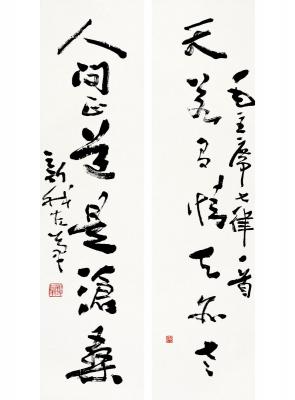 天若有情天亦老
毛主席七律一首
人间正道是沧桑
新我左笔